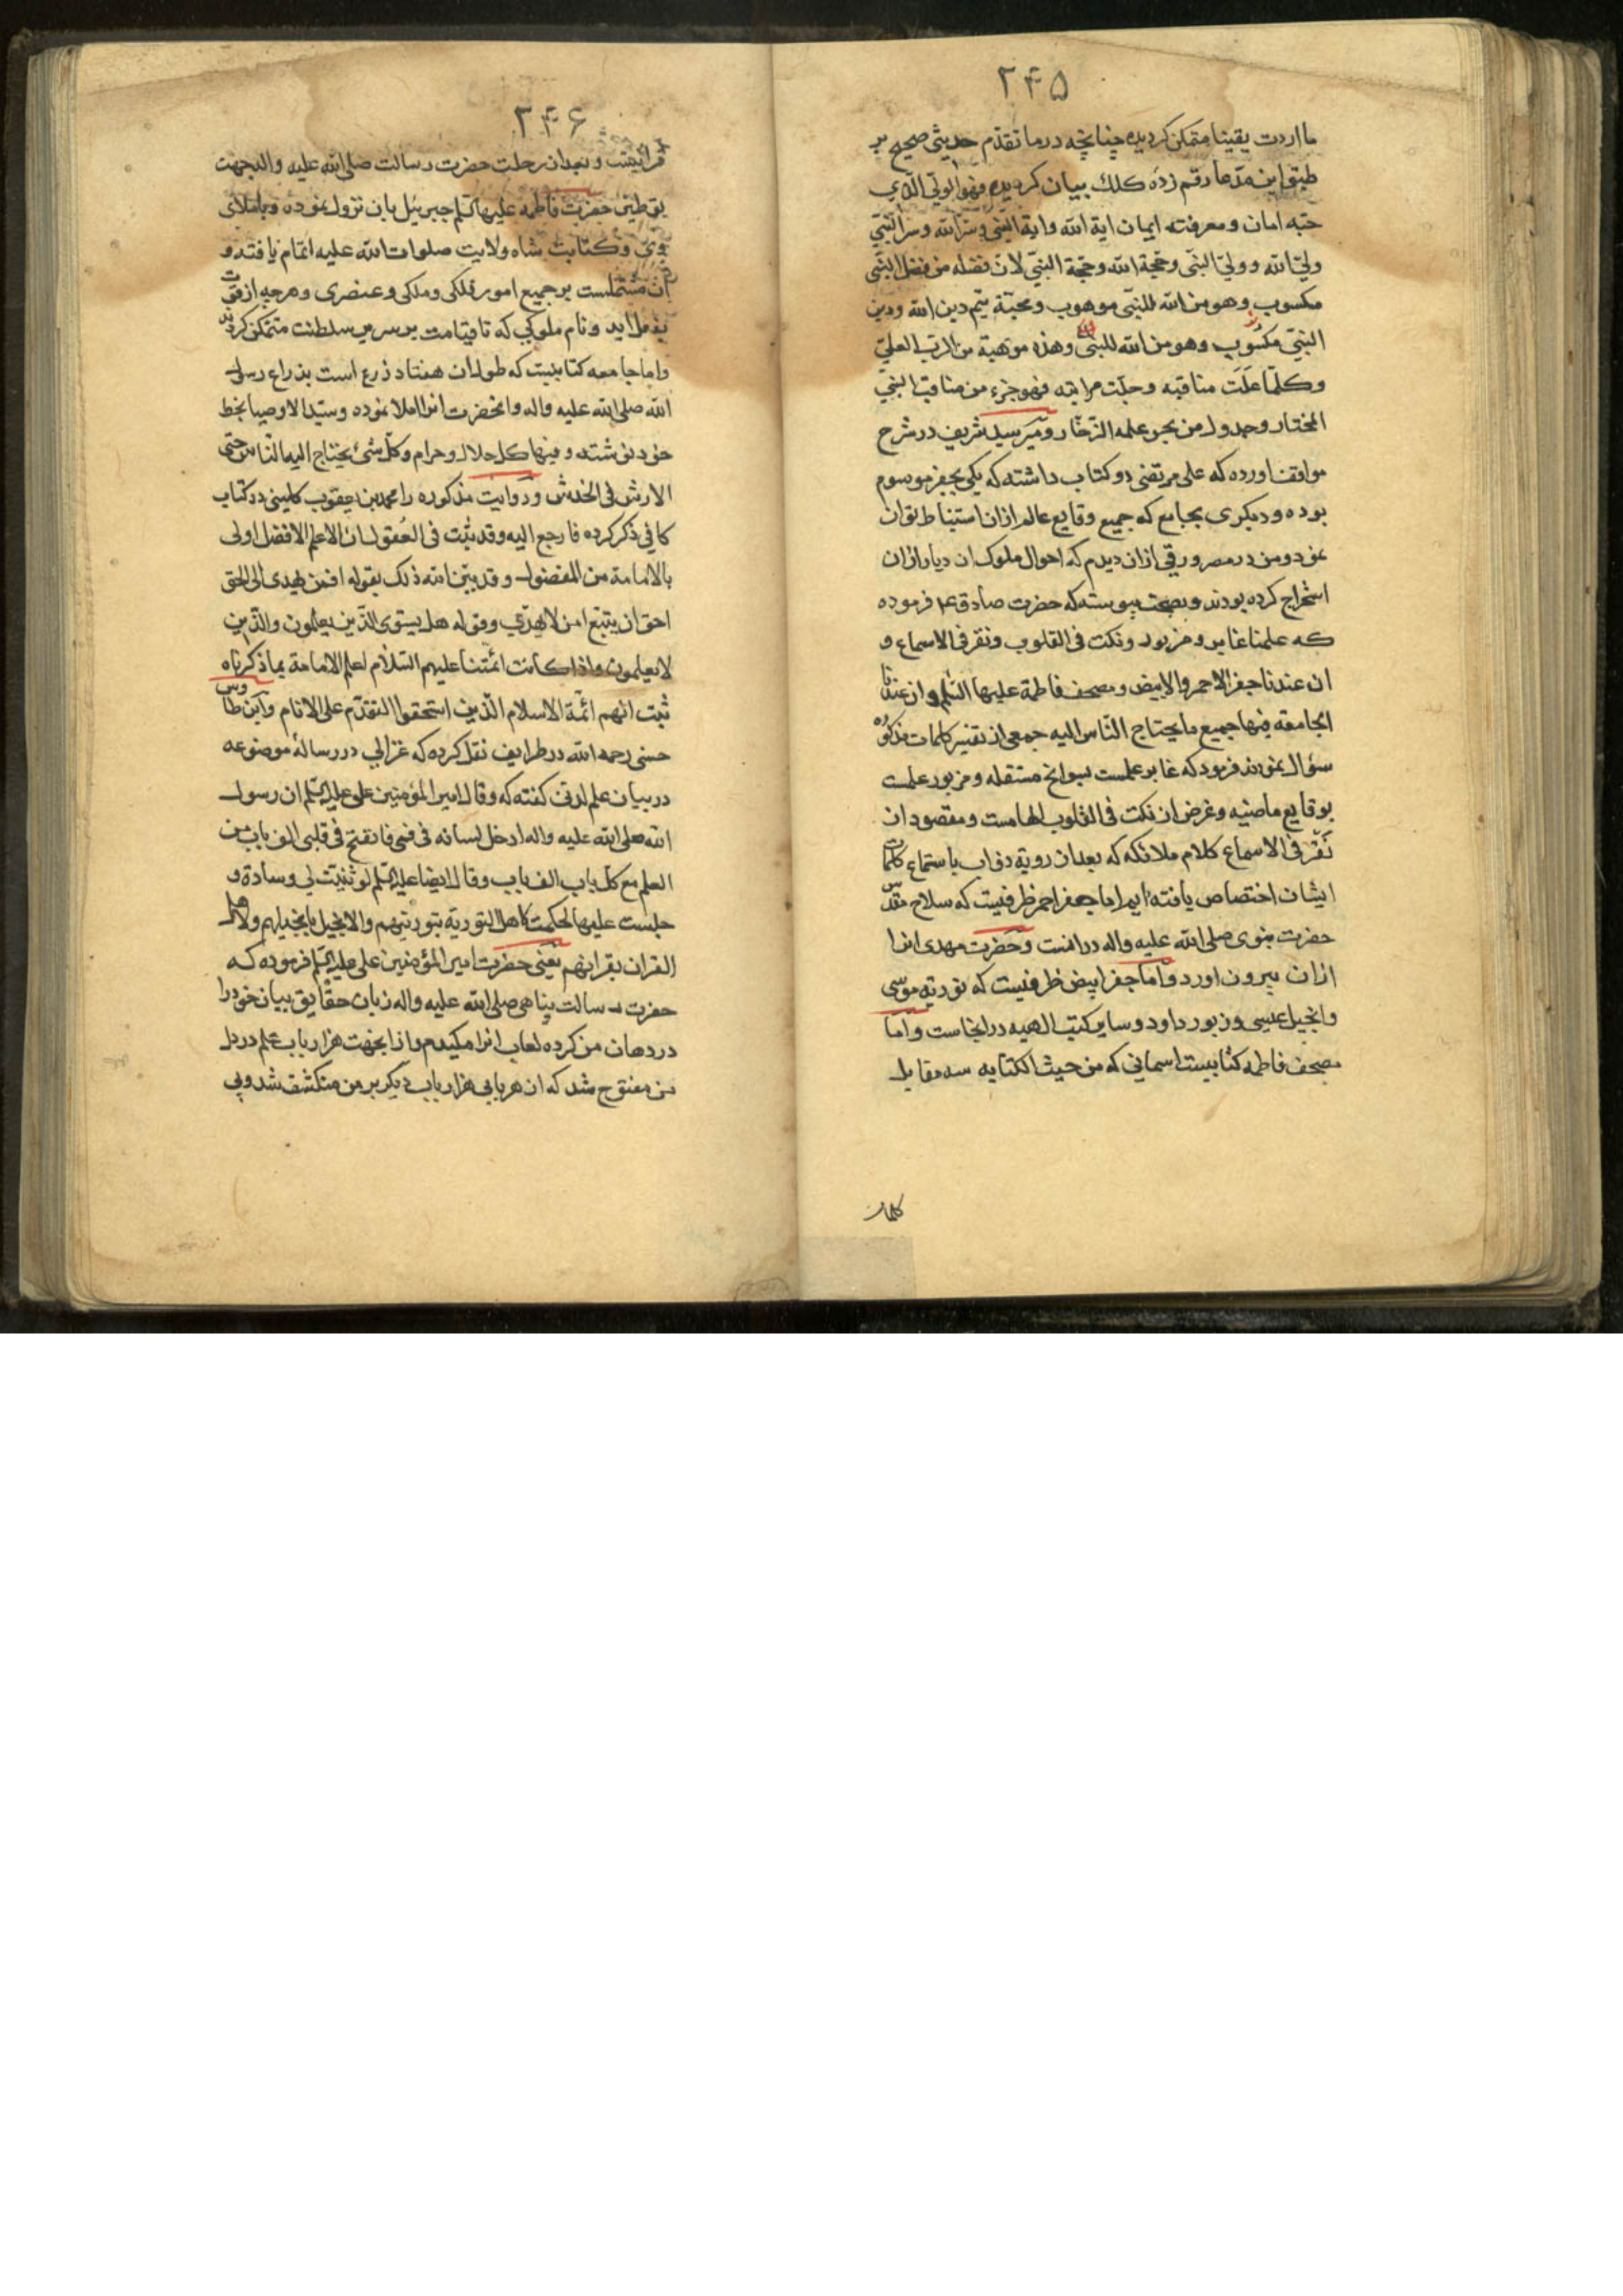 ۲۴۵
ما اردت یقینا متمکن کردیده چنانچه درما تقدّم حدیثی صحیح بر
طبق این مدّعا رقم زدهٔ کلک بیان کردیده فهو الولیّ الّذی
حبّه امان ومعرفته ایمان ایة الله وایة النّبی وسرّ الله وسرّ النّبیّ
ولیّ الله وولیّ النبّی وحجّة الله وحجّة النبیّ لانّ فضله من فضل النبّی
مکسوب وهو من الله للنبّی موهوب ومحبّة یتّم دین الله ودین
النبیّ مکسُوب وهو من الله للنبیّ وهذه موهبة من الربّ العلیّ
وکلّما علَت مناقبه وجلّت مراتبه فهو جزء من مناقب النبیّ
المختار وجدول من بحر علمه الزّخّار ومیر سید شریف در شرح
مواقف اورده که علی مرتضی دو کتاب داشته که یکی بجفر موسوم
بوده ودیکری بجامع که جمیع وقایع عالم ازان استنباط توان
نمود ومن در مصر ورقی ازان دیدم که احوال ملوک ان دیار ازان
استخراج کرده بودند وبصحت پیوسته که حضرت صادق ع فرموده
که علمنا غابر ومزبور ونکت فی القلوب ونقر فی الاسماع و
ان عندنا جفر الاحمر والابیض ومصحف فاطمة علیها السّلم وان عندنا
الجامعه فیها جمیع ما یحتاج النّاس الیه جمعی از تفسیر کلمات مذکوره
سؤال نمودند فرمود که غابر علمست بسوانح مستقبله ومزبور علمست
بوقایع ماضیه وغرض از نکت فی القلوب الهامست ومقصود ان
نقر فی الاسماع کلام ملائکه که بعدان رویة ذواب باستماع کلمات
ایشان اختصاص یافته ایم اما جفر احمر ظرفیست که سلاح مقدّس
حضرت نبوی صلی الله علیه واله درانست وحضرت مهدی انرا
ازان بیرون اورد واما جفر ابیض ظرفیست که توریة موسی
وانجیل عیسی وزبور داود وسایر کتب الهیه درانجاست واما
مصحف فاطمه کتابیست اسمانی که من حیث الکتابه سه مقابل
کلمات
۲۴۶
قرانهست وبعدان رحلت حضرت رسالت صلی الله علیه واله بجهت
توطین حضرت فاطمه علیها السّلم جبرییل بان نزول نموده وباملای
وی وکتابت شاه ولایت صلوات الله علیه اتمام یافته و
ان مشتملست بر جمیع امور فلکی وملکی وعنصری وهرچه از قوت
بفعل اید ونام ملوکی که تا قیامت بر سریر سلطنت متمکن کردند
واما جامعه کتابیست که طول ان هفتاد ذرع است بذراع رسول
الله صلی الله علیه واله وانحضرت انرا املا نموده وسیّد الاوصیا بخط
خود نوشته وفیها کل حلال وحرام وکلّ شئ یحتاج الیه النّاس حتی
الارش فی الخدش وروایت مذکوره را محمد بن یعقوب کلینی در کتاب
کافی ذکر کرده فارجع الیه وقد ثبت فی العُقول ان الاعلم الافضل اولی
بالامامة من المفضول وقد بیّن الله ذلک بقوله افمن یهدی الی الحق
احق ان یتبّع امن لا یهدّی وقوله هل یستوی الّذین یعلمون والّذین
لا یعلمون واذا کانت ائمّتنا علیهم السّلام اعلم الامامة بما ذکرناه
ثبت انّهم ائمّة الاسلام الّذین استحقوا التقدّم علی الانام وابن طاوس
حسنی رحمه الله در طرایف نقل کرده که غزالی در رسالهٔ موضوعه
در بیان علم لدنی کفته که وقال امیر المؤمنین علی علیه السّلم ان رسول
الله صلی الله علیه واله ادخل لسانه فی فمی فانفتح فی قلبی الف باب من
العلم مع کل باب الف باب وقال ایضا علیه السّلم لو ثنیت لی وسادة و
جلست علیها لحکمت لاهل التوریة بتوریتهم والانجیل بانجیلهم ولاهل
القران بقرانهم یعنی حضرت امیر المؤمنین علی علیه السّلم فرموده که
حضرت رسالت پناهی صلی الله علیه واله زبان حقایق بیان خود را
در دهان من کرده لعاب انرا مکیدم وازانجهت هزار باب علم در دل
من مفتوح شد که از هر بابی هزار باب دیکر بر من منکشف شد وبی